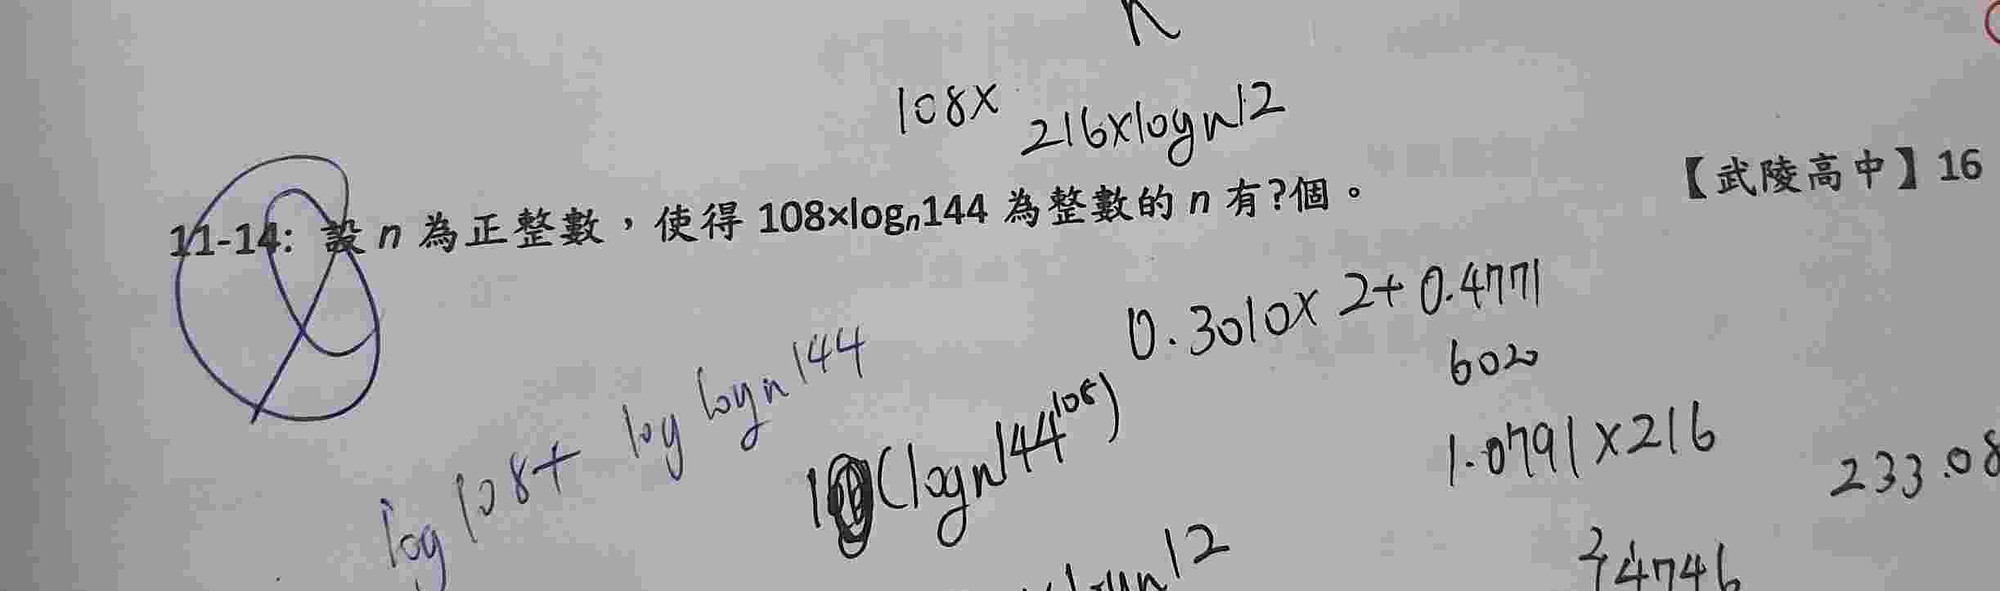 n
108×
216×logn12
11-14: 設 n 為正整數，使得 108×logn144 為整數的 n 有?個。
【武陵高中】16
0.3010×2+0.4771
6020
log108+ log logn144
(logn144^108)
1.0791×216
233.08
logn12